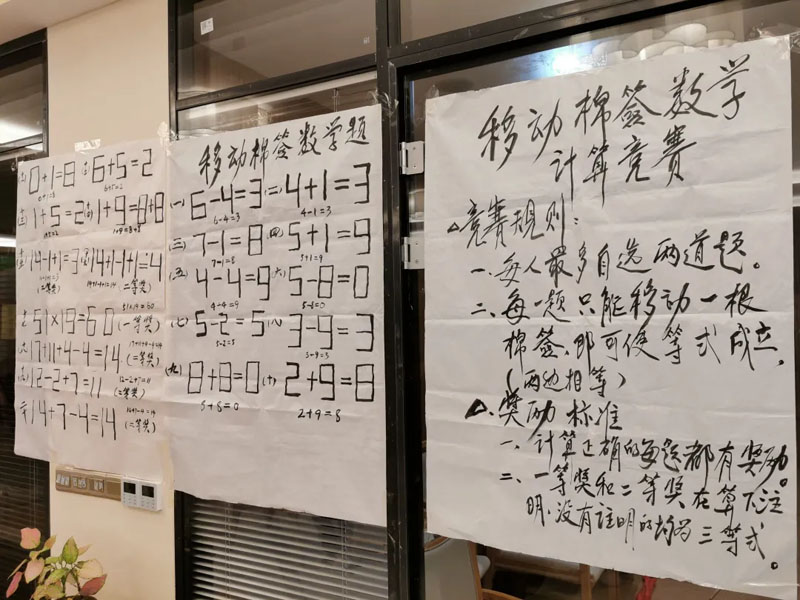 (二) 0+1=8 (三) 6+5=2
0+1=8
6+5=2
(三) 1+5=2 (古) 1+9=8+8
1+5=2
1+9=8+8
14-1+1=3 14+1-1+1=4
(二等奖)
14+1-1+1=4
(二等奖)
51×19=60 (一等奖)
51×19=60
17+11+4-4=14 (二等奖)
17+11+4-4=14
12-2+7=11 (二等奖)
12-2+7=11
14+7-4=14 (二等奖)
14+7-4=14
移动棉签数学题
(一) 6-4=3 (二) 4+1=3
6-4=3
4-1=3
(三) 7-1=8 (四) 5+1=9
7-1=8
5+1=9
(五) 4-4=9 (六) 5-8=0
4-4=9
5-8=0
(七) 5-2=5 (八) 3-9=3
5-2=5
3-9=3
(九) 8+8=0 (十) 2+9=8
8+8=0
2+9=8
移动棉签数学
计算竞赛
△竞赛规则:
一、每人最多自选两道题。
二、每一题只能移动一根
棉签,即可使等式成立,
(两边相等)
△、奖励标准
一、计算正确的每题都有奖励。
二、一等奖和二等奖在算下注
明,没有注明的均为三等式。